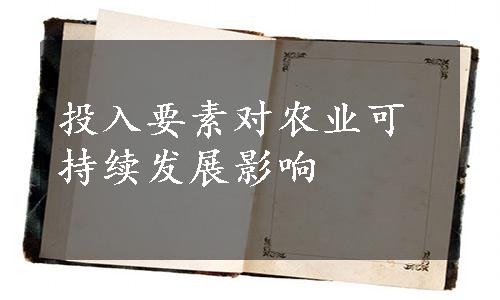 投入要素对农业可
持续发展影响